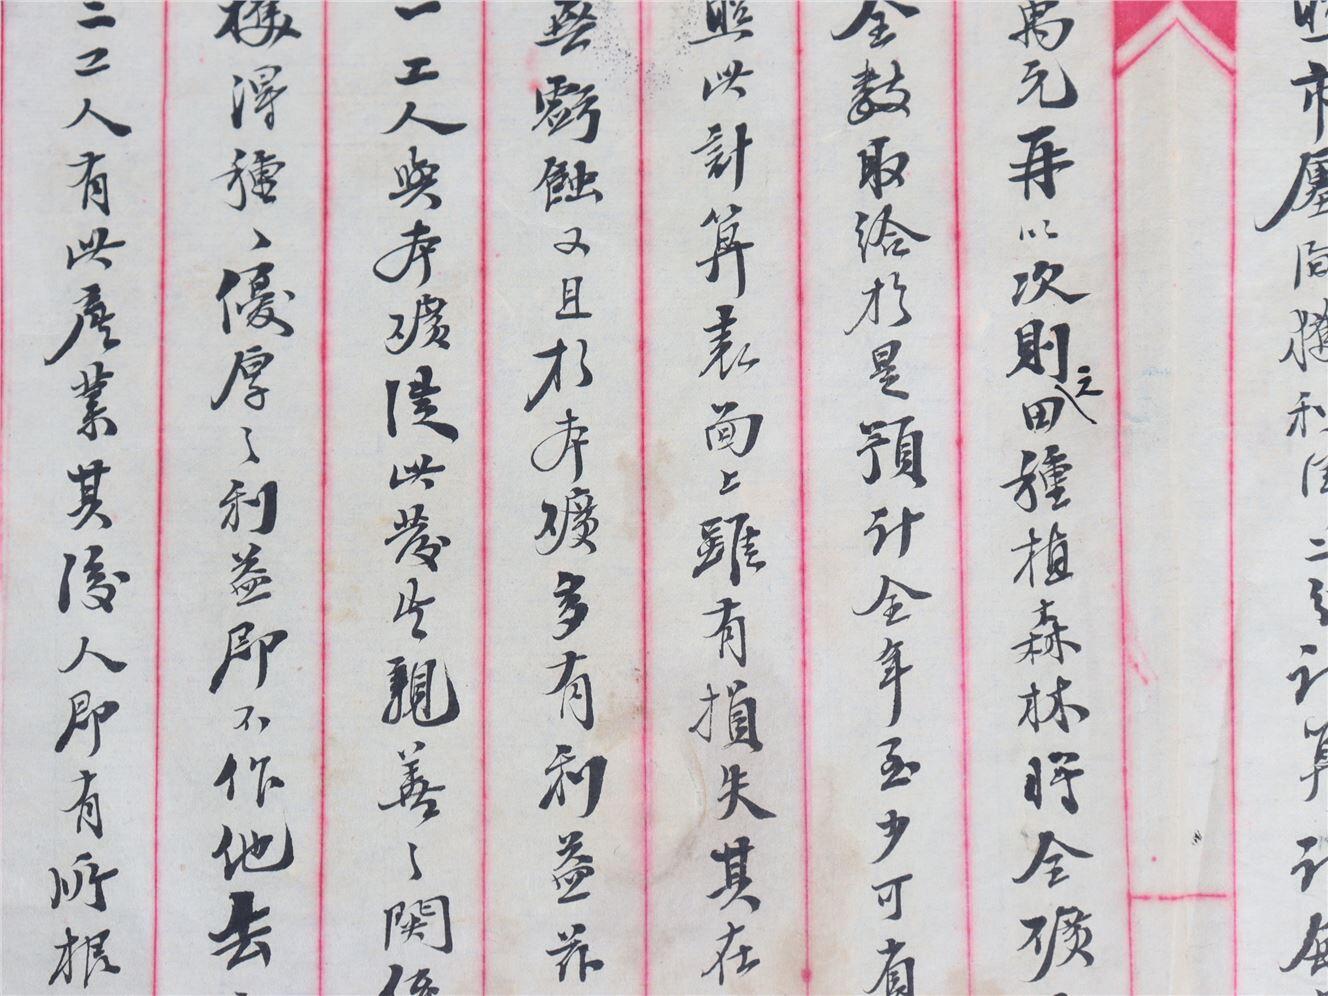 市屬同獲利 二 計算計
萬元再以次則之田種植森林將全礦
全數取給於是預計全年至少可省
照此計算表面上雖有損失其在
無虧蝕又且於本礦多有利益茲
一工人與本礦從此發生親善之關係
獲得種種優厚之利益即不作他去
二工人有此產業其後人即有所根